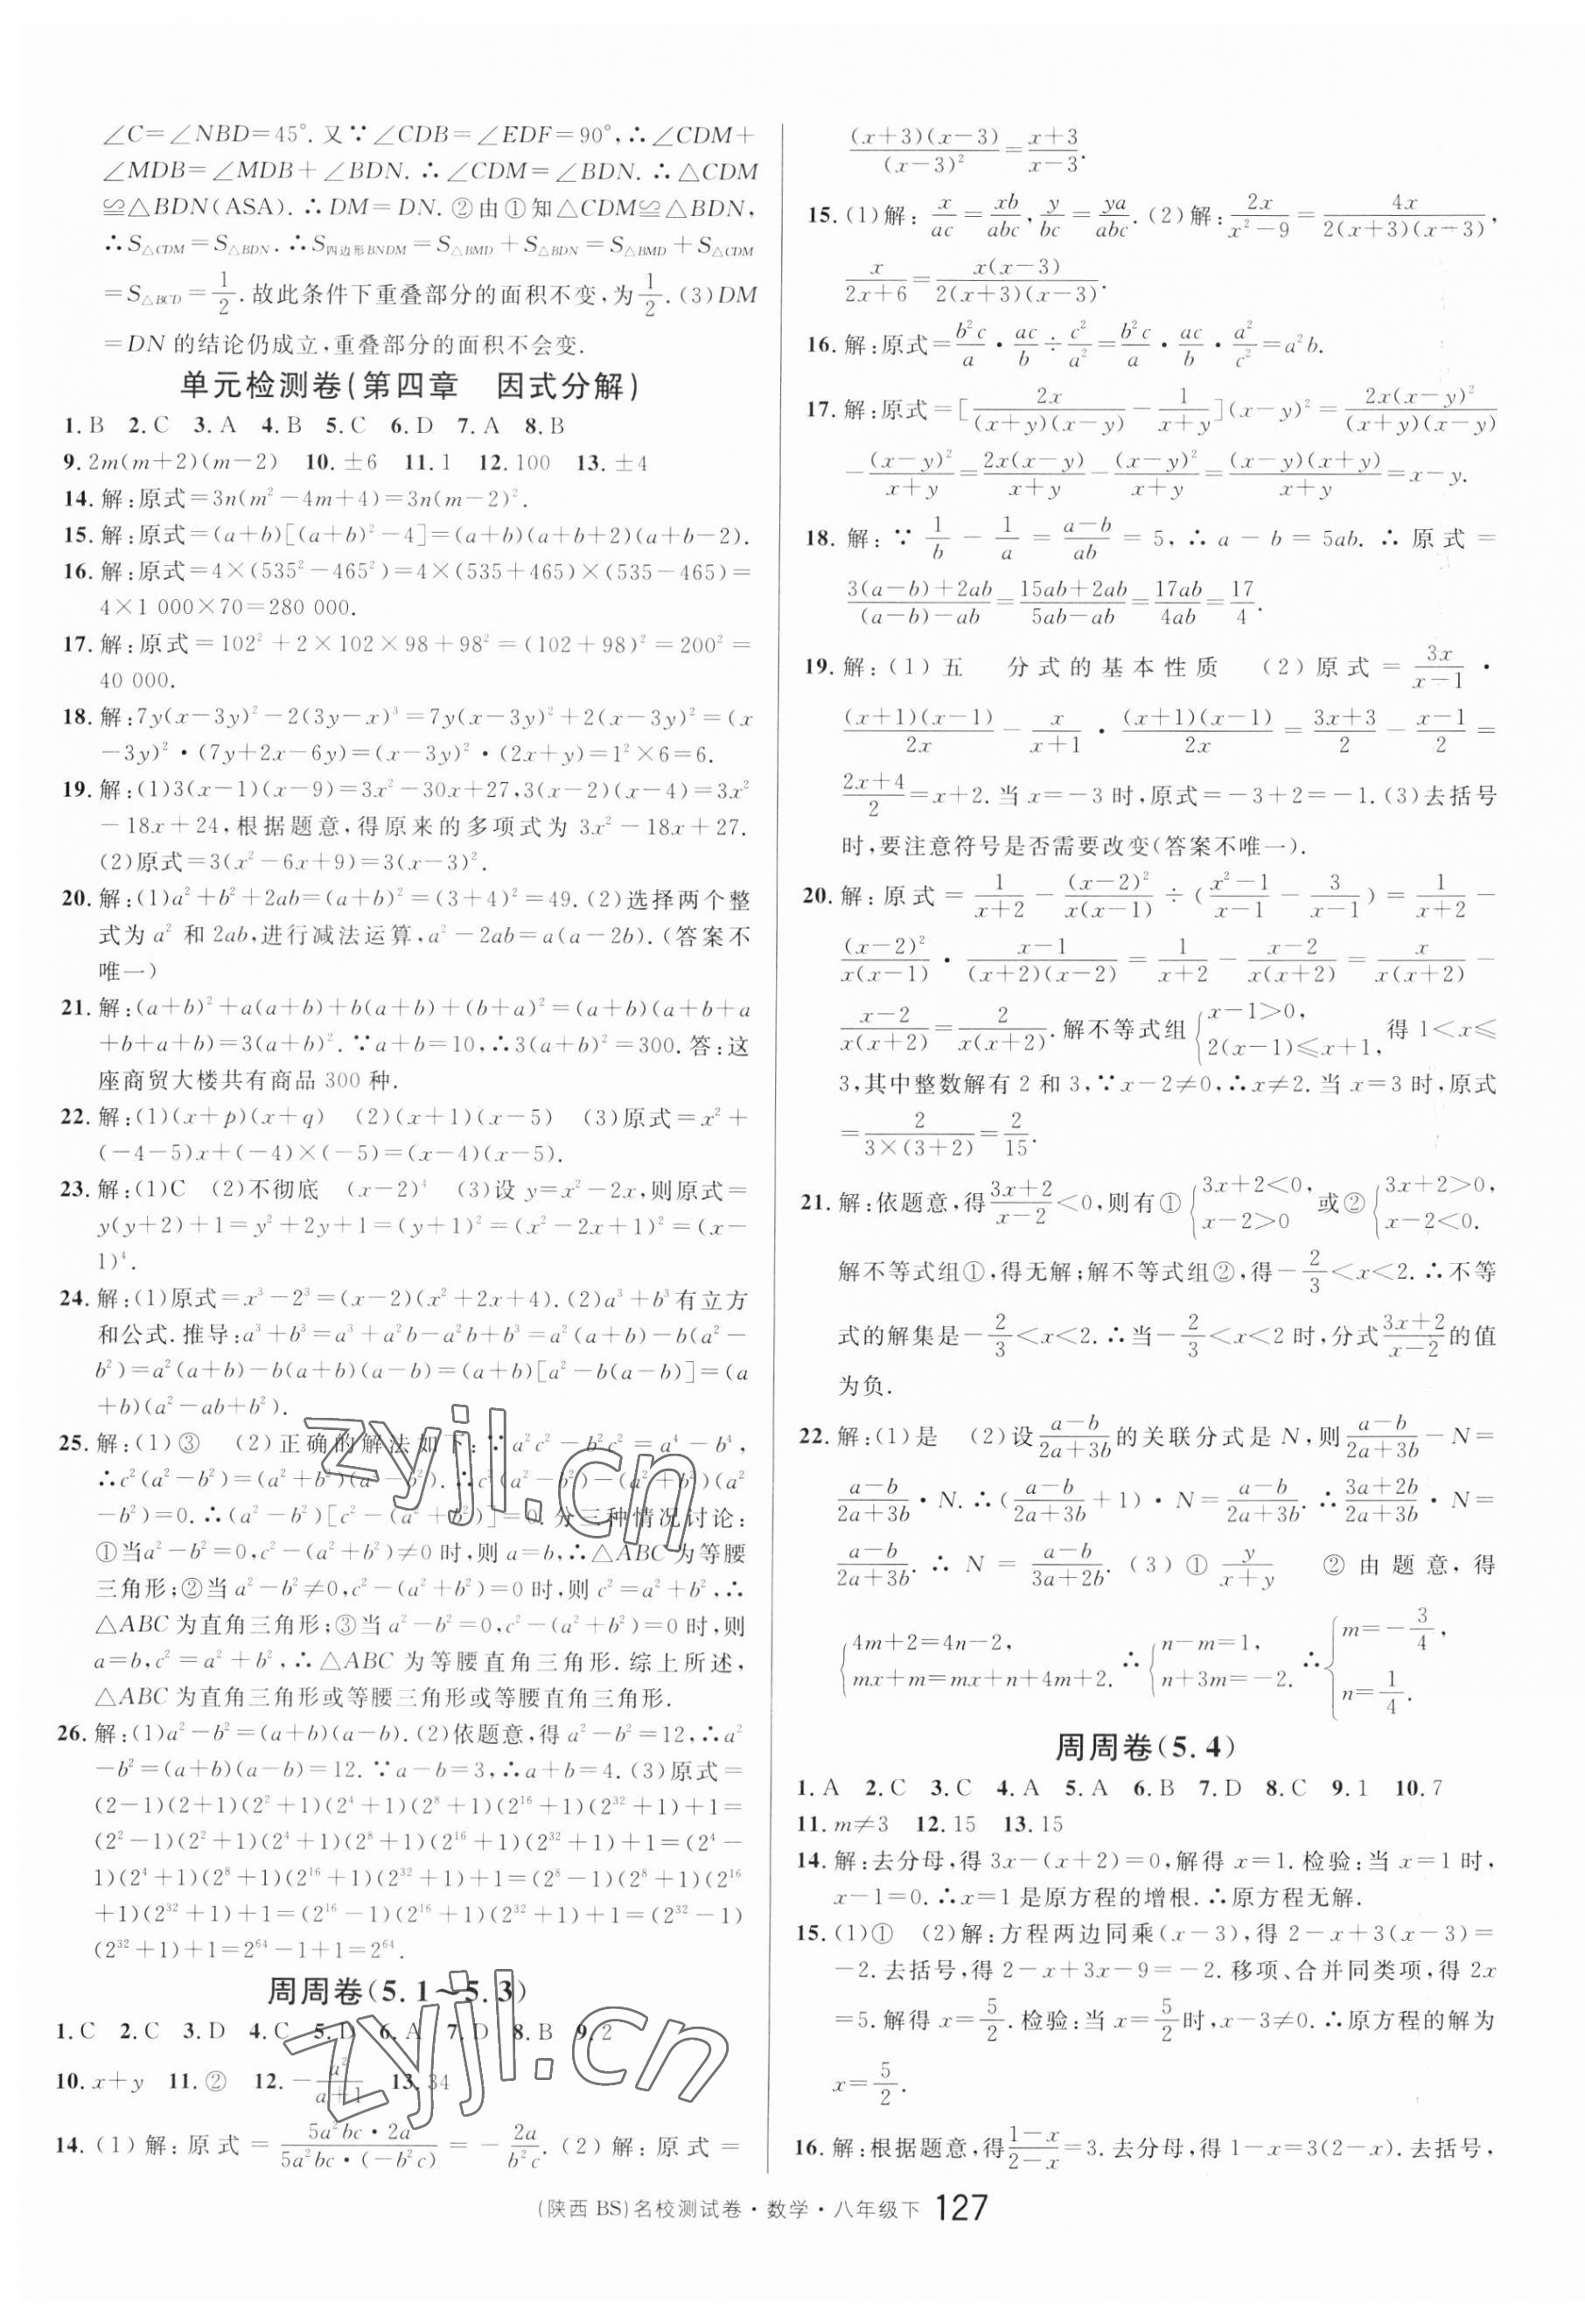 ∠C=∠NBD=45°.又∵∠CDB=∠EDF=90°,∴∠CDM+
∠MDB=∠MDB+∠BDN.∴∠CDM=∠BDN.∴△CDM
≌△BDN(ASA).∴DM=DN.②由①知△CDM≌△BDN,
∴S△CDM=S△BDN.∴S四边形BNDM=S△BMD+S△BDN=S△BMD+S△CDM
=S△BCD=1/2.故此条件下重叠部分的面积不变,为1/2.(3)DM
=DN的结论仍成立,重叠部分的面积不会变.
单元检测卷(第四章　因式分解)
1.B 2.C 3.A 4.B 5.C 6.D 7.A 8.B
9.2m(m+2)(m-2) 10.±6 11.1 12.100 13.±4
14.解:原式=3n(m²-4m+4)=3n(m-2)².
15.解:原式=(a+b)[(a+b)²-4]=(a+b)(a+b+2)(a+b-2).
16.解:原式=4×(535²-465²)=4×(535+465)×(535-465)=
4×1 000×70=280 000.
17.解:原式=102²+2×102×98+98²=(102+98)²=200²=
40 000.
18.解:7y(x-3y)²-2(3y-x)³=7y(x-3y)²+2(x-3y)²=(x
-3y)²·(7y+2x-6y)=(x-3y)²·(2x+y)=1²×6=6.
19.解:(1)3(x-1)(x-9)=3x²-30x+27,3(x-2)(x-4)=3x²
-18x+24,根据题意,得原来的多项式为3x²-18x+27.
(2)原式=3(x²-6x+9)=3(x-3)².
20.解:(1)a²+b²+2ab=(a+b)²=(3+4)²=49.(2)选择两个整
式为a²和2ab,进行减法运算,a²-2ab=a(a-2b).(答案不
唯一)
21.解:(a+b)²+a(a+b)+b(a+b)+(b+a)²=(a+b)(a+b+a
+b+a+b)=3(a+b)².∵a+b=10,∴3(a+b)²=300.答:这
座商贸大楼共有商品300种.
22.解:(1)(x+p)(x+q) (2)(x+1)(x-5) (3)原式=x²+
(-4-5)x+(-4)×(-5)=(x-4)(x-5).
23.解:(1)C (2)不彻底 (x-2)⁴ (3)设y=x²-2x,则原式=
y(y+2)+1=y²+2y+1=(y+1)²=(x²-2x+1)²=(x-
1)⁴.
24.解:(1)原式=x³-2³=(x-2)(x²+2x+4).(2)a³+b³有立方
和公式.推导:a³+b³=a³+a²b-a²b+b³=a²(a+b)-b(a²-
b²)=a²(a+b)-b(a+b)(a-b)=(a+b)[a²-b(a-b)]=(a
+b)(a²-ab+b²).
25.解:(1)③ (2)正确的解法如下:∵a²c²-b²c²=a⁴-b⁴,
∴c²(a²-b²)=(a²+b²)(a²-b²).∴c²(a²-b²)-(a²+b²)(a²
-b²)=0.∴(a²-b²)[c²-(a²+b²)]=0.分三种情况讨论:
①当a²-b²=0,c²-(a²+b²)≠0时,则a=b,∴△ABC为等腰
三角形;②当a²-b²≠0,c²-(a²+b²)=0时,则c²=a²+b²,∴
△ABC为直角三角形;③当a²-b²=0,c²-(a²+b²)=0时,则
a=b,c²=a²+b²,∴△ABC为等腰直角三角形.综上所述,
△ABC为直角三角形或等腰三角形或等腰直角三角形.
26.解:(1)a²-b²=(a+b)(a-b).(2)依题意,得a²-b²=12,∴a²
-b²=(a+b)(a-b)=12.∵a-b=3,∴a+b=4.(3)原式=
(2-1)(2+1)(2²+1)(2⁴+1)(2⁸+1)(2¹⁶+1)(2³²+1)+1=
(2²-1)(2²+1)(2⁴+1)(2⁸+1)(2¹⁶+1)(2³²+1)+1=(2⁴-
1)(2⁴+1)(2⁸+1)(2¹⁶+1)(2³²+1)+1=(2⁸-1)(2⁸+1)(2¹⁶
+1)(2³²+1)+1=(2¹⁶-1)(2¹⁶+1)(2³²+1)+1=(2³²-1)
(2³²+1)+1=2⁶⁴-1+1=2⁶⁴.
周周卷(5.1～5.3)
1.C 2.C 3.D 4.C 5.D 6.A 7.D 8.B 9.2
10.x+y 11.② 12.-a²/(a+1) 13.34
14.(1)解:原式=5a²bc·2a/(5a²bc·(-b²c))=-2a/(b²c).(2)解:原式=
(x+3)(x-3)/(x-3)²=(x+3)/(x-3).
15.(1)解:x/ac=xb/abc,y/bc=ya/abc.(2)解:2x/(x²-9)=4x/(2(x+3)(x-3)),
x/(2x+6)=x(x-3)/(2(x+3)(x-3)).
16.解:原式=b²c/a·ac/b÷c²/a²=b²c/a·ac/b·a²/c²=a²b.
17.解:原式=[2x/((x+y)(x-y))-1/(x+y)](x-y)²=2x(x-y)²/((x+y)(x-y))
-(x-y)²/(x+y)=2x(x-y)/(x+y)-(x-y)²/(x+y)=(x-y)(x+y)/(x+y)=x-y.
18.解:∵1/b-1/a=(a-b)/ab=5,∴a-b=5ab.∴原式=
(3(a-b)+2ab)/((a-b)-ab)=(15ab+2ab)/(5ab-ab)=17ab/4ab=17/4.
19.解:(1)五 分式的基本性质 (2)原式=3x/(x-1)·
(x+1)(x-1)/2x-x/(x+1)·(x+1)(x-1)/2x=(3x+3)/2-(x-1)/2=
(2x+4)/2=x+2.当x=-3时,原式=-3+2=-1.(3)去括号
时,要注意符号是否需要改变(答案不唯一).
20.解:原式=1/(x+2)-(x-2)²/(x(x-1))÷((x²-1)/(x-1)-3/(x-1))=1/(x+2)-
(x-2)²/(x(x-1))·(x-1)/((x+2)(x-2))=1/(x+2)-(x-2)/(x(x+2))=x/(x(x+2))-
(x-2)/(x(x+2))=2/(x(x+2)).解不等式组{x-1>0, 2(x-1)≤x+1,得1<x≤
3,其中整数解有2和3,∵x-2≠0,∴x≠2.当x=3时,原式
=2/(3×(3+2))=2/15.
21.解:依题意,得(3x+2)/(x-2)<0,则有①{3x+2<0, x-2>0或②{3x+2>0, x-2<0.
解不等式组①,得无解;解不等式组②,得-2/3<x<2.∴不等
式的解集是-2/3<x<2.∴当-2/3<x<2时,分式(3x+2)/(x-2)的值
为负.
22.解:(1)是 (2)设(a-b)/(2a+3b)的关联分式是N,则(a-b)/(2a+3b)-N=
(a-b)/(2a+3b)·N.∴((a-b)/(2a+3b)+1)·N=(a-b)/(2a+3b).∴(3a+2b)/(2a+3b)·N=
(a-b)/(2a+3b).∴N=(a-b)/(3a+2b).(3)①y/(x+y) ②由题意,得
{4m+2=4n-2, mx+m=mx+n+4m+2.∴{n-m=1, n+3m=-2.∴{m=-3/4, n=1/4.
周周卷(5.4)
1.A 2.C 3.C 4.A 5.A 6.B 7.D 8.C 9.1 10.7
11.m≠3 12.15 13.15
14.解:去分母,得3x-(x+2)=0,解得x=1.检验:当x=1时,
x-1=0.∴x=1是原方程的增根.∴原方程无解.
15.(1)① (2)解:方程两边同乘(x-3),得2-x+3(x-3)=
-2.去括号,得2-x+3x-9=-2.移项、合并同类项,得2x
=5.解得x=5/2.检验:当x=5/2时,x-3≠0.∴原方程的解为
x=5/2.
16.解:根据题意,得(1-x)/(2-x)=3.去分母,得1-x=3(2-x).去括号,
(陕西 BS)名校测试卷·数学·八年级下 127
zyjl.cn
zyjl.cn